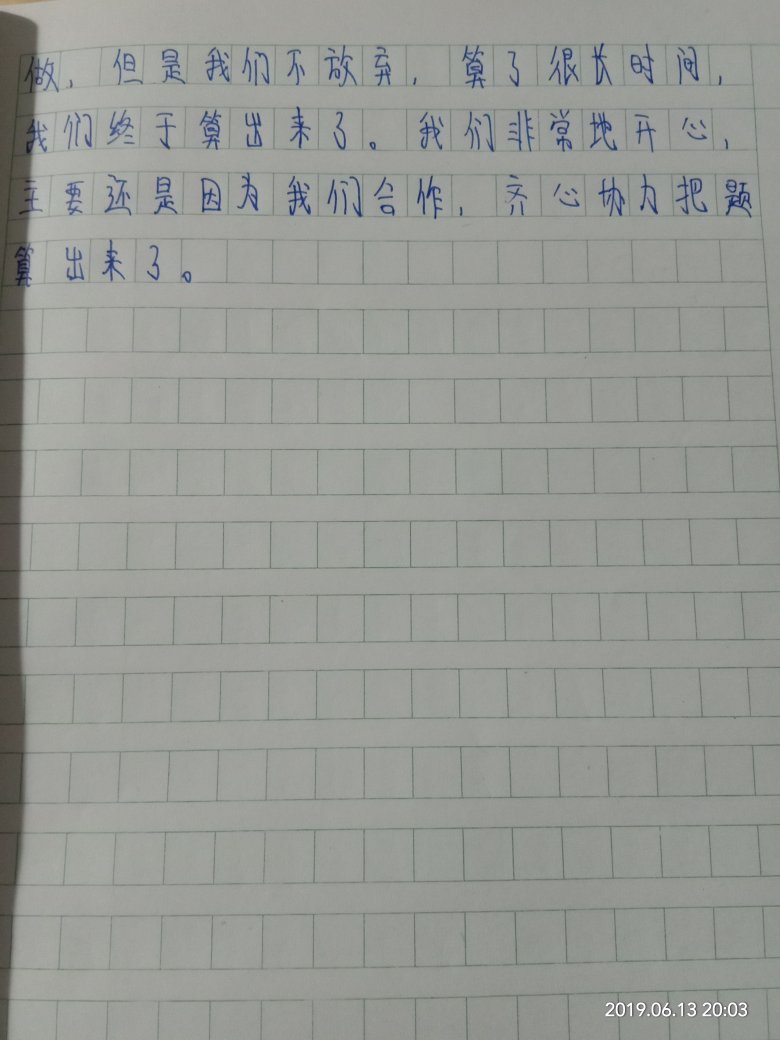 做，但是我们不放弃，算了很长时间，
我们终于算出来了。我们非常地开心，
主要还是因为我们合作，齐心协力把题
算出来了。
2019.06.13 20:03